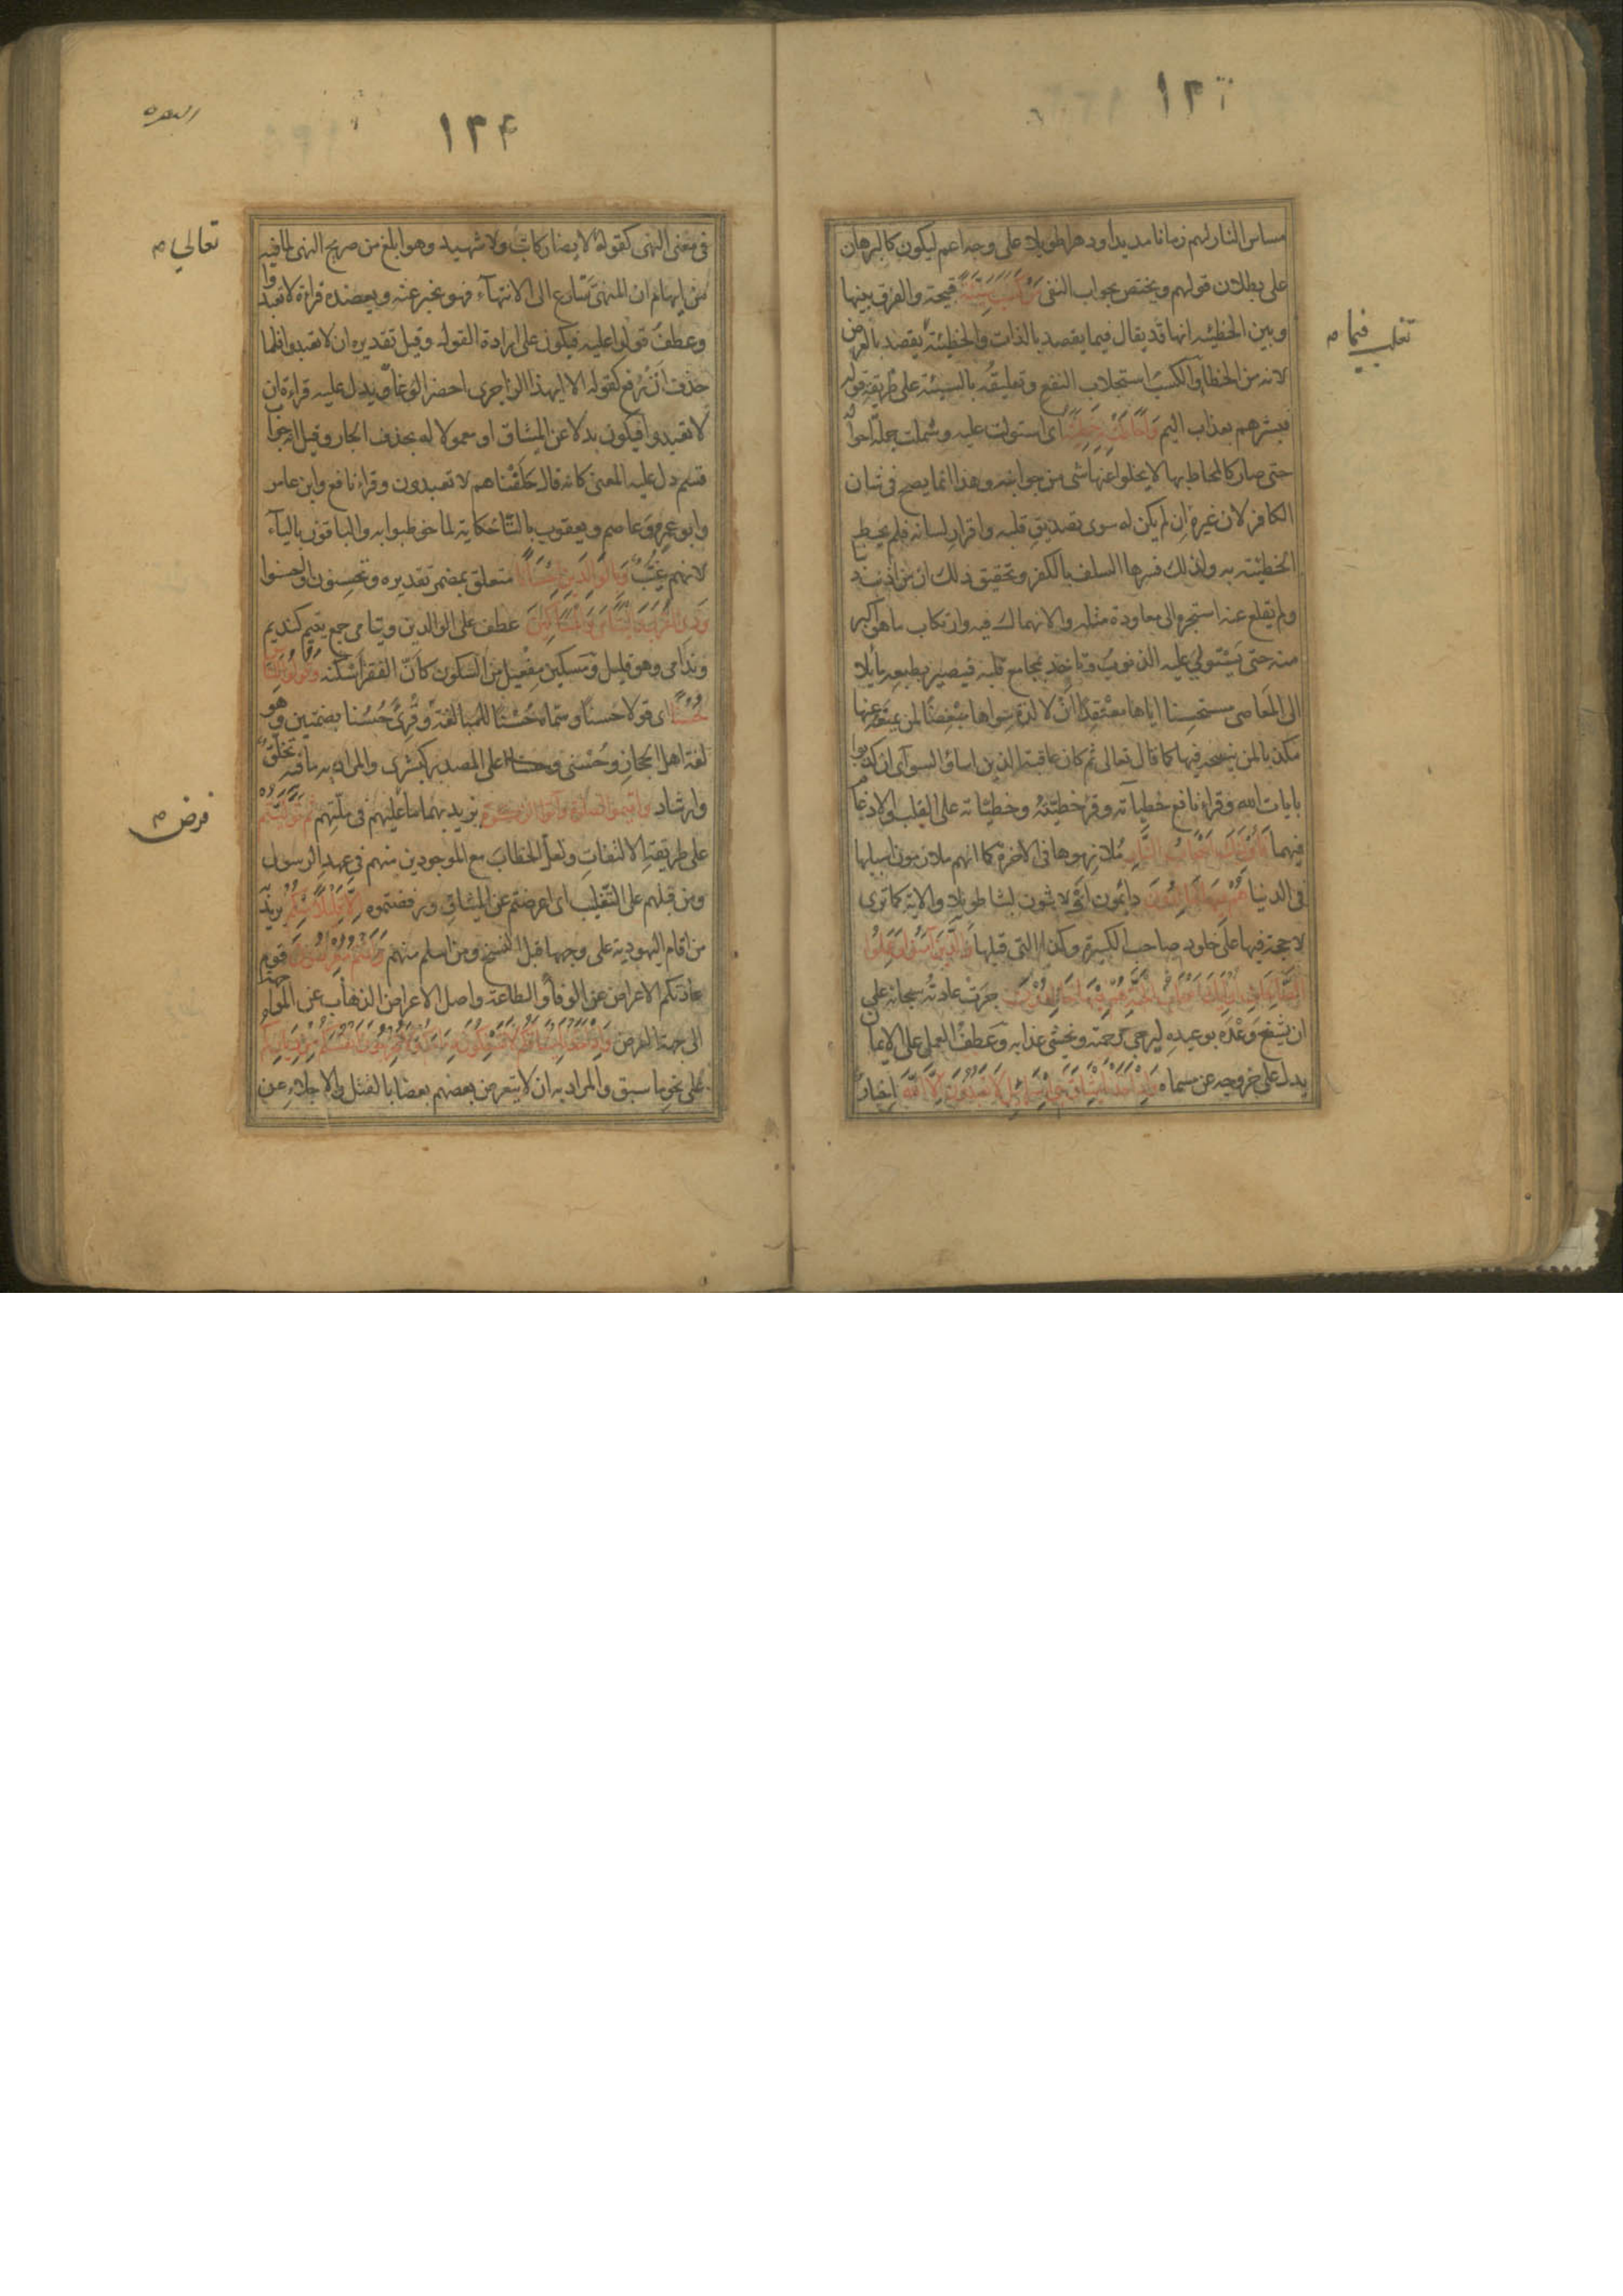 مساس النار لهم زمانا مديدا ودهرا طويلا على وجه اعم ليكون كالبرهان
على بطلان قولهم ويختص بجواب النفى من كسب سيئة قبيحة والفرق بينها
وبين الخطيئه انها قد يقال فيما يقصد بالذات والخطيئة يقصد بالعرض
لانه من الخطا والكسب استجلاب النفع وتعليقه بالسيئة على طريقة قوله
فبشرهم بعذاب اليم واحاطت به خطيئته اى استولت عليه وشملت جملة احوا
حتى صار كالمحاط بها لا يخلوا عنها شى من جوانبه وهذا انما يصح فى شان
الكافر لان غيره ان لم يكن له سوى تصديق قلبه واقرار لسانه فلم يحيط
الخطيئته به ولذلك فسرها السلف بالكفر وتحقيق ذلك ان من اذنب
ولم يقلع عنه استجره الى معاودة مثله والانهماك فيه وارتكاب ما هو اكبر
منه حتى يستولى عليه الذنوب وتاخذ بمجامع قلبه فيصير بطبعه مايلا
الى المعاصى مستحسنا اياها معتقدا ان لا لذة سواها مبغضا لمن يمنعه عنها
مكذبا لمن ينصحه فيها كما قال تعالى ثم كان عاقبة الذين اساؤا السوآى ان كذبوا
بايات الله وقراء نافع خطيآته وقرئ خطيّته وخطيّاته على القلب والادغا
فيهما فاولئك اصحاب النار ملازموها فى الاخرة كما انهم ملازمون اسبابها
فى الدنيا هم فيها خالدون دائمون او لابثون لبثا طويلا والاية كما ترى
لا حجة فيها على خلود صاحب الكبيرة وكذا التى قبلها والذين آمنوا وعملوا
الصالحات اولئك اصحاب الجنة هم فيها خالدون جرت عادته سبحانه على
ان يشفع وعده بوعيده ليرجى رحمته ويخشى عذابه وعطف العمل على الايمان
يدل على خروجه عن مسماه واذ اخذنا ميثاق بنى اسرائيل لا تعبدون الا الله اخبار
تغلب فيما م
١٢٤
البقره
فى معنى النهى كقوله لا يضار كاتب ولا شهيد وهو ابلغ من صريح النهى لما فيه
من ايهام ان المنهى سارع الى الانتهآء فهو يخبر عنه ويعضده قراءة لا تعبدوا
وعطف قولوا عليه فيكون على ارادة القول وقيل تقديره ان لا تعبدوا فلما
حذف ان رفع كقوله الا ايهذا الزاجرى احضر الوغا ويدل عليه قراءة ان
لا تعبدوا فيكون بدلا عن الميثاق او معمولا له بحذف الجار وقيل انه جوا
قسم دل عليه المعنى كانه قال حلفناهم لا تعبدون وقراء نافع وابن عامر
وابو عمرو وعاصم ويعقوب بالتآ حكاية لما خوطبوا به والباقون باليآء
لانهم غيّب وبالوالدين احسانا متعلق بمضمر تقديره وتحسنون او احسنوا
وذى القربى واليتامى والمساكين عطف على الوالدين ويتامى جمع يتيم كنديم
وندامى وهو قليل ومسكين مفعيل من السكون كان الفقر اسكنه وقولوا للناس
حسنا اى قولا حسنا وسماه حسنا للمبالغة وقرئ حسنا بضمتين وهو
لغة اهل الحجاز وحسنى على المصدر كبشرى والمراد به ما فيه تخلق
وارشاد واقيموا الصلوة وآتوا الزكوة يريد بهما ما عليهم فى ملتهم ثم توليتم
على طريقة الالتفات ولعل الخطاب مع الموجودين منهم فى عهد الرسول
ومن قبلهم على التغليب اى اعرضتم عن الميثاق ورفضتموه الا قليلا منكم يريد
من اقام اليهودية على وجهها قبل النسخ ومن اسلم منهم وانتم معرضون قوم
عادتكم الاعراض عن الوفا والطاعة واصل الاعراض الذهاب عن المواجهة
الى جهة العرض واذ اخذنا ميثاقكم لا تسفكون دماءكم ولا تخرجون انفسكم من دياركم
على نحو ما سبق والمراد به ان لا يتعرض بعضهم بعضا بالقتل والاجلاء عن
تعالى م
فرض م